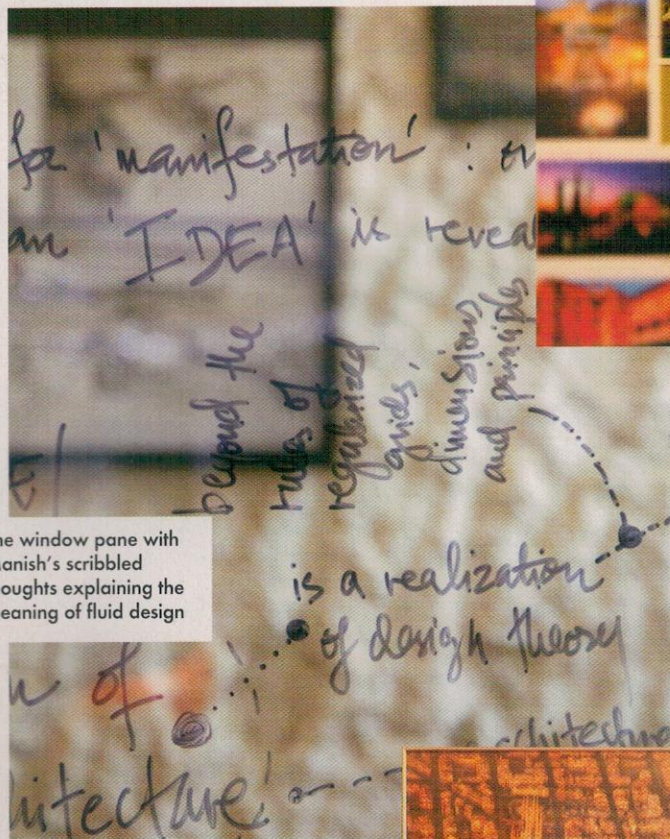 for 'manifestation' :
an 'IDEA' is reveal
beyond the
rules of
regularized
grids,
dimensions
and principles
ne window pane with
anish's scribbled
oughts explaining the
eaning of fluid design
is a realization
of design theory
of
chitecture
hitecture'